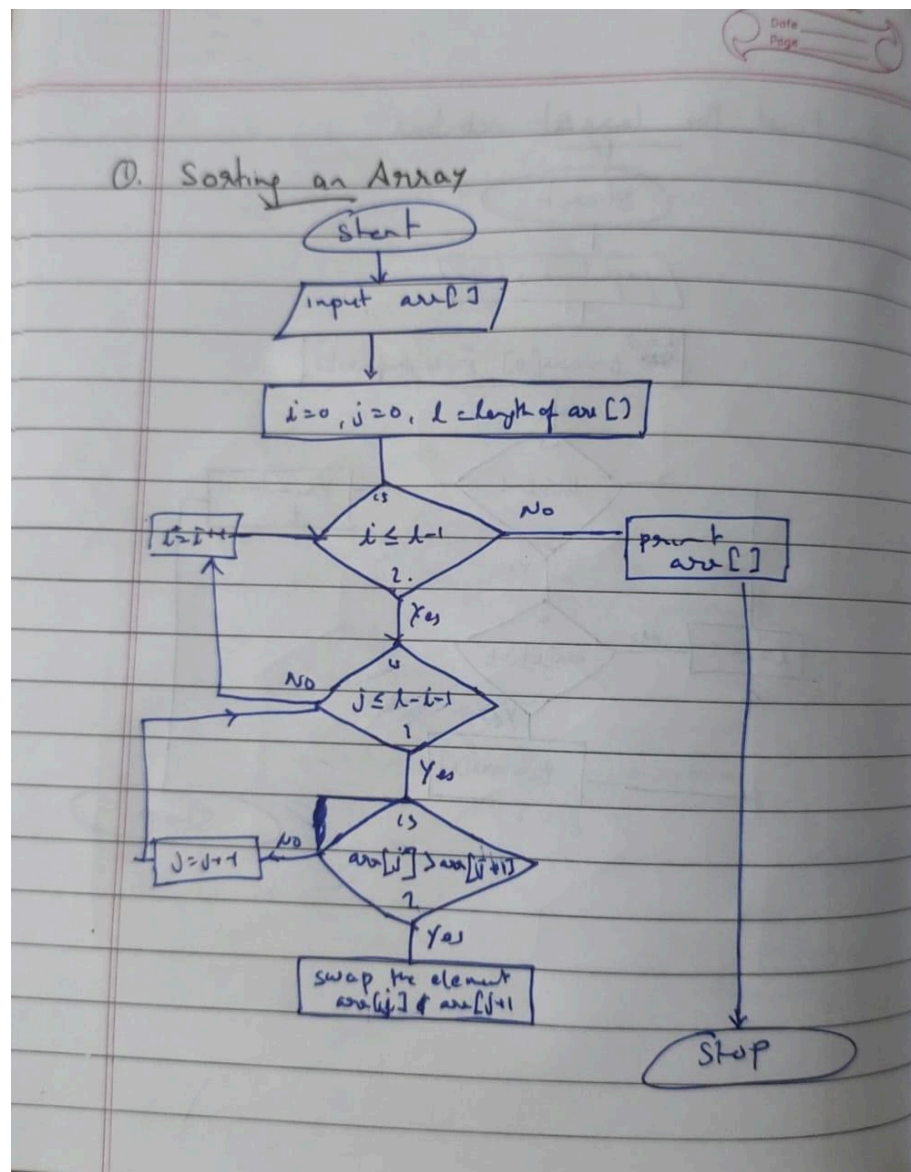 Date
Page
①. Sorting an Array
Start
input arr[]
i=0, j=0, l = length of arr[]
is
i ≤ l-1
?.
No
print
arr[]
i=i++
Yes
is
j ≤ l-i-1
?
No
Yes
is
arr[j] > arr[j+1]
?
No
j=j++
Yes
swap the element
arr[j] & arr[j+1
Stop